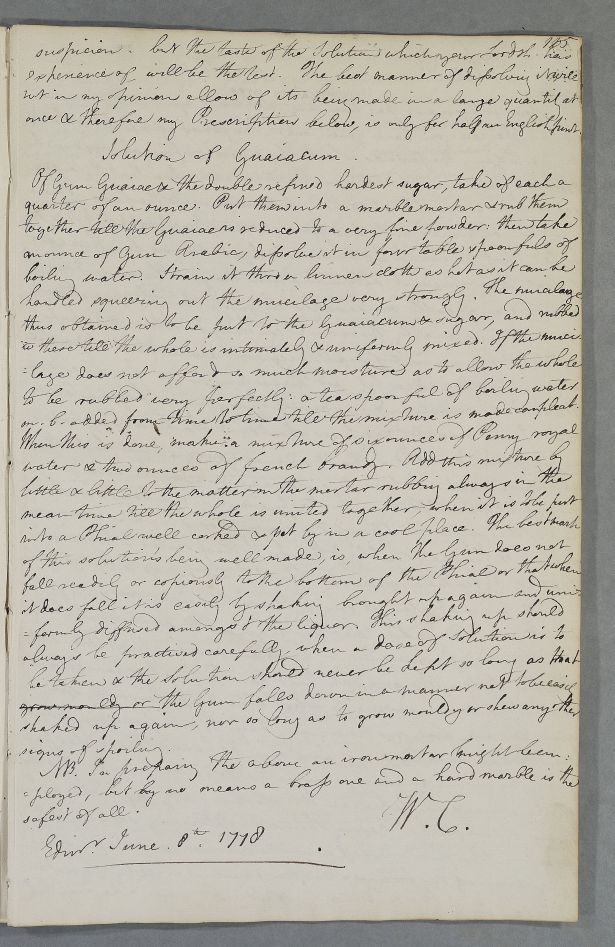 165
suspicion. but the taste of the Solution which your Lordsh: has
experience of will be the test. The best manner of dissolving it will
not in my opinion allow of its being made in a large quantity at
once & therefore my Prescription below, is only for half an English pint.
Solution of Guaiacum.
Of Gum Guaiac & the double refined hardest sugar, take of each a
quarter of an ounce. Put them into a marble mortar & rub them
together till the Guaiac is reduced to a very fine powder: then take
an ounce of Gum Arabic, dissolve it in four table spoonfuls of
boiling water. Strain it thro a linnen cloth as hot as it can be
handled squeezing out the mucilage very strongly. The mucilage
thus obtained is to be put to the Guaiacum & sugar, and rubbed
w these till the whole is intimately & uniformly mixed. If the muci-
=lage does not afford so much moisture as to allow the whole
to be rubbed very perfectly: a teaspoonful of boiling water
m. b. added from time to time till the mixture is made compleat.
When this is done, make a mixture of six ounces of Penny royal
water & two ounces of french brandy. Add this mixture by
little & little to the matter in the mortar rubbing always in the
mean time till the whole is united together, when it is to be put
into a Phial well corked & put by in a cool place. The best mark
of this solution's being well made, is, when the Gum does not
fall readily or copiously to the bottom of the Phial or that when
it does fall it is easily by shaking brought up again and uni-
=formly diffused amongst the liquor. This shaking up should
always be practised carefully when a dose of Solution is to
be taken & the Solution should never be kept so long as that
grow mouldy or the Gum falls down in a manner not to be easily
shaked up again, nor so long as to grow mouldy or shew any other
signs of spoiling.
NB. In preparing the above an iron mortar might be em:
=ployed, but by no means a brass one and a hard marble is the
safest of all.
W. C.
Edinr. June. 8th. 1778.